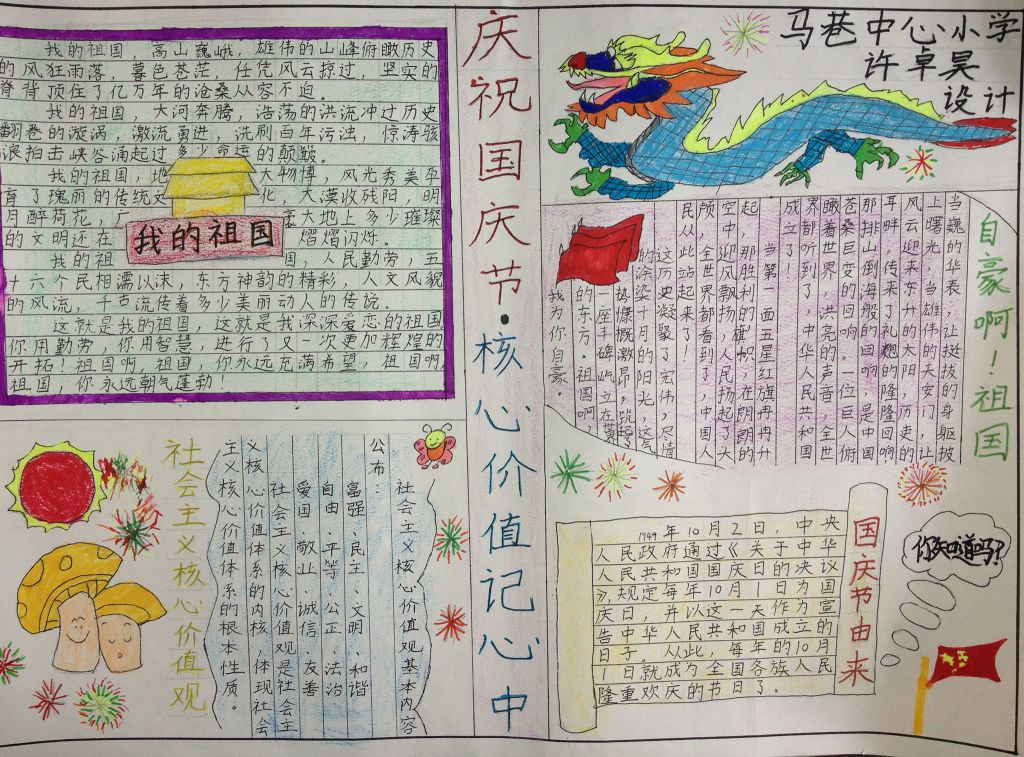 我的祖国，高山巍峨，雄伟的山峰俯瞰历史
的风狂雨落，暮色苍茫，任凭风云掠过，坚实的
脊背顶住了亿万年的沧桑从容不迫。
我的祖国，大河奔腾，浩荡的洪流冲过历史
翻卷的漩涡，激流勇进，洗刷百年污浊，惊涛骇
浪拍击峡谷涌起过多少命运的颠簸。
我的祖国，地大物博，风光秀美孕
育了瑰丽的传统文化，大漠收残阳，明
月醉荷花，广豪大地上多少璀璨
的文明还在熠熠闪烁。
我的祖国，人民勤劳，五
十六个民相濡以沫，东方神韵的精彩，人文风貌
的风流，千古流传着多少美丽动人的传说。
这就是我的祖国，这就是我深深爱恋的祖国。
你用勤劳，你用智慧，进行了又一次更加辉煌的
开拓！祖国啊，祖国，你永远充满希望，祖国啊，
祖国，你永远朝气蓬勃！
我的祖国
庆祝国庆节·核心价值记心中
马巷中心小学
许卓昊
设计
自豪啊！祖国
当巍的华表，让挺拔的身躯披
上曙光，当雄伟的天安门，让
风云迎来东升的太阳，历史的
耳畔，传来了礼炮的隆隆回响
那排山倒海般的回响，是中国
苍桑巨变的回响。一位巨人俯
瞰着世界，洪亮的声音，全世
界都听到了，中华人民共和国
成立了！
当第一面五星红旗冉冉升
起，那胜利的旗帜，在朗朗的
空中迎风飘扬，人民扬起了头
颅，全世界都看到了，中国人
民从此站起来了。
这历史凝聚了宏伟，尽情
的涂染十月的阳光，这气
势慷慨激昂，筑起了
一座丰碑，屹立在世界
的东方。祖国啊，
我为你自豪。
社会主义核心价值观
社会主义核心价值观基本内容
公布：
富强、民主、文明、和谐
自由、平等、公正、法治
爱国、敬业、诚信、友善
社会主义核心价值观是社会主
义核心价值体系的内核，体现社会
主义核心价值体系的根本性质。
国庆节由来
1949年10月2日，中央
人民政府通过《关于中华
人民共和国国庆日的决议
》，规定每年10月1日为国
庆日，并以这一天作为宣
告中华人民共和国成立的
日子。从此，每年的10月
1日就成为全国各族人民
隆重欢庆的节日了。
你知道吗？